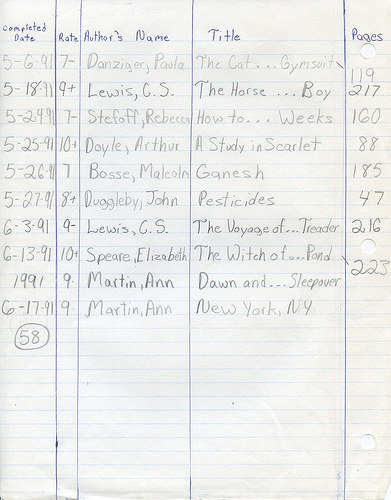 Completed Date Rate Author's Name Title Pages
5-6-91 7- Danziger, Paula The Cat... Gymsuit 119
5-18-91 9+ Lewis, C.S. The Horse ... Boy 217
5-24-91 7- Stefoff, Rebecca How to... Weeks 160
5-25-91 10+ Doyle, Arthur A Study in Scarlet 88
5-26-91 7 Bosse, Malcolm Ganesh 185
5-27-91 8+ Duggleby, John Pesticides 47
6-3-91 9- Lewis, C.S. The Voyage of...Treader 216
6-13-91 10+ Speare, Elizabeth The Witch of...Pond 223
1991 9. Martin, Ann Dawn and...Sleepover
6-17-91 9. Martin, Ann New York, N.Y.
58